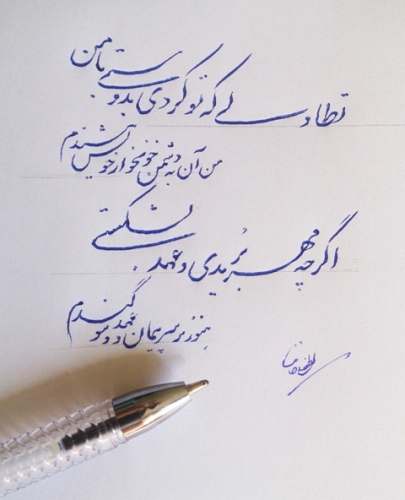 تطاولی که تو کردی بدوستی با من
من آن به دشمن خونخوار خویش نپسندم
اگرچه مهر بُریدی و عهد بشکستی
هنوز بر سر پیمان و عهد و سوگندم